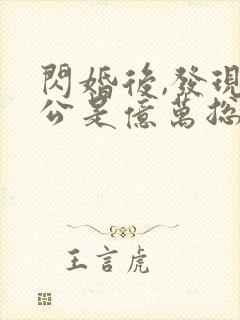 閃婚後,發現
公是億萬總
王言虎